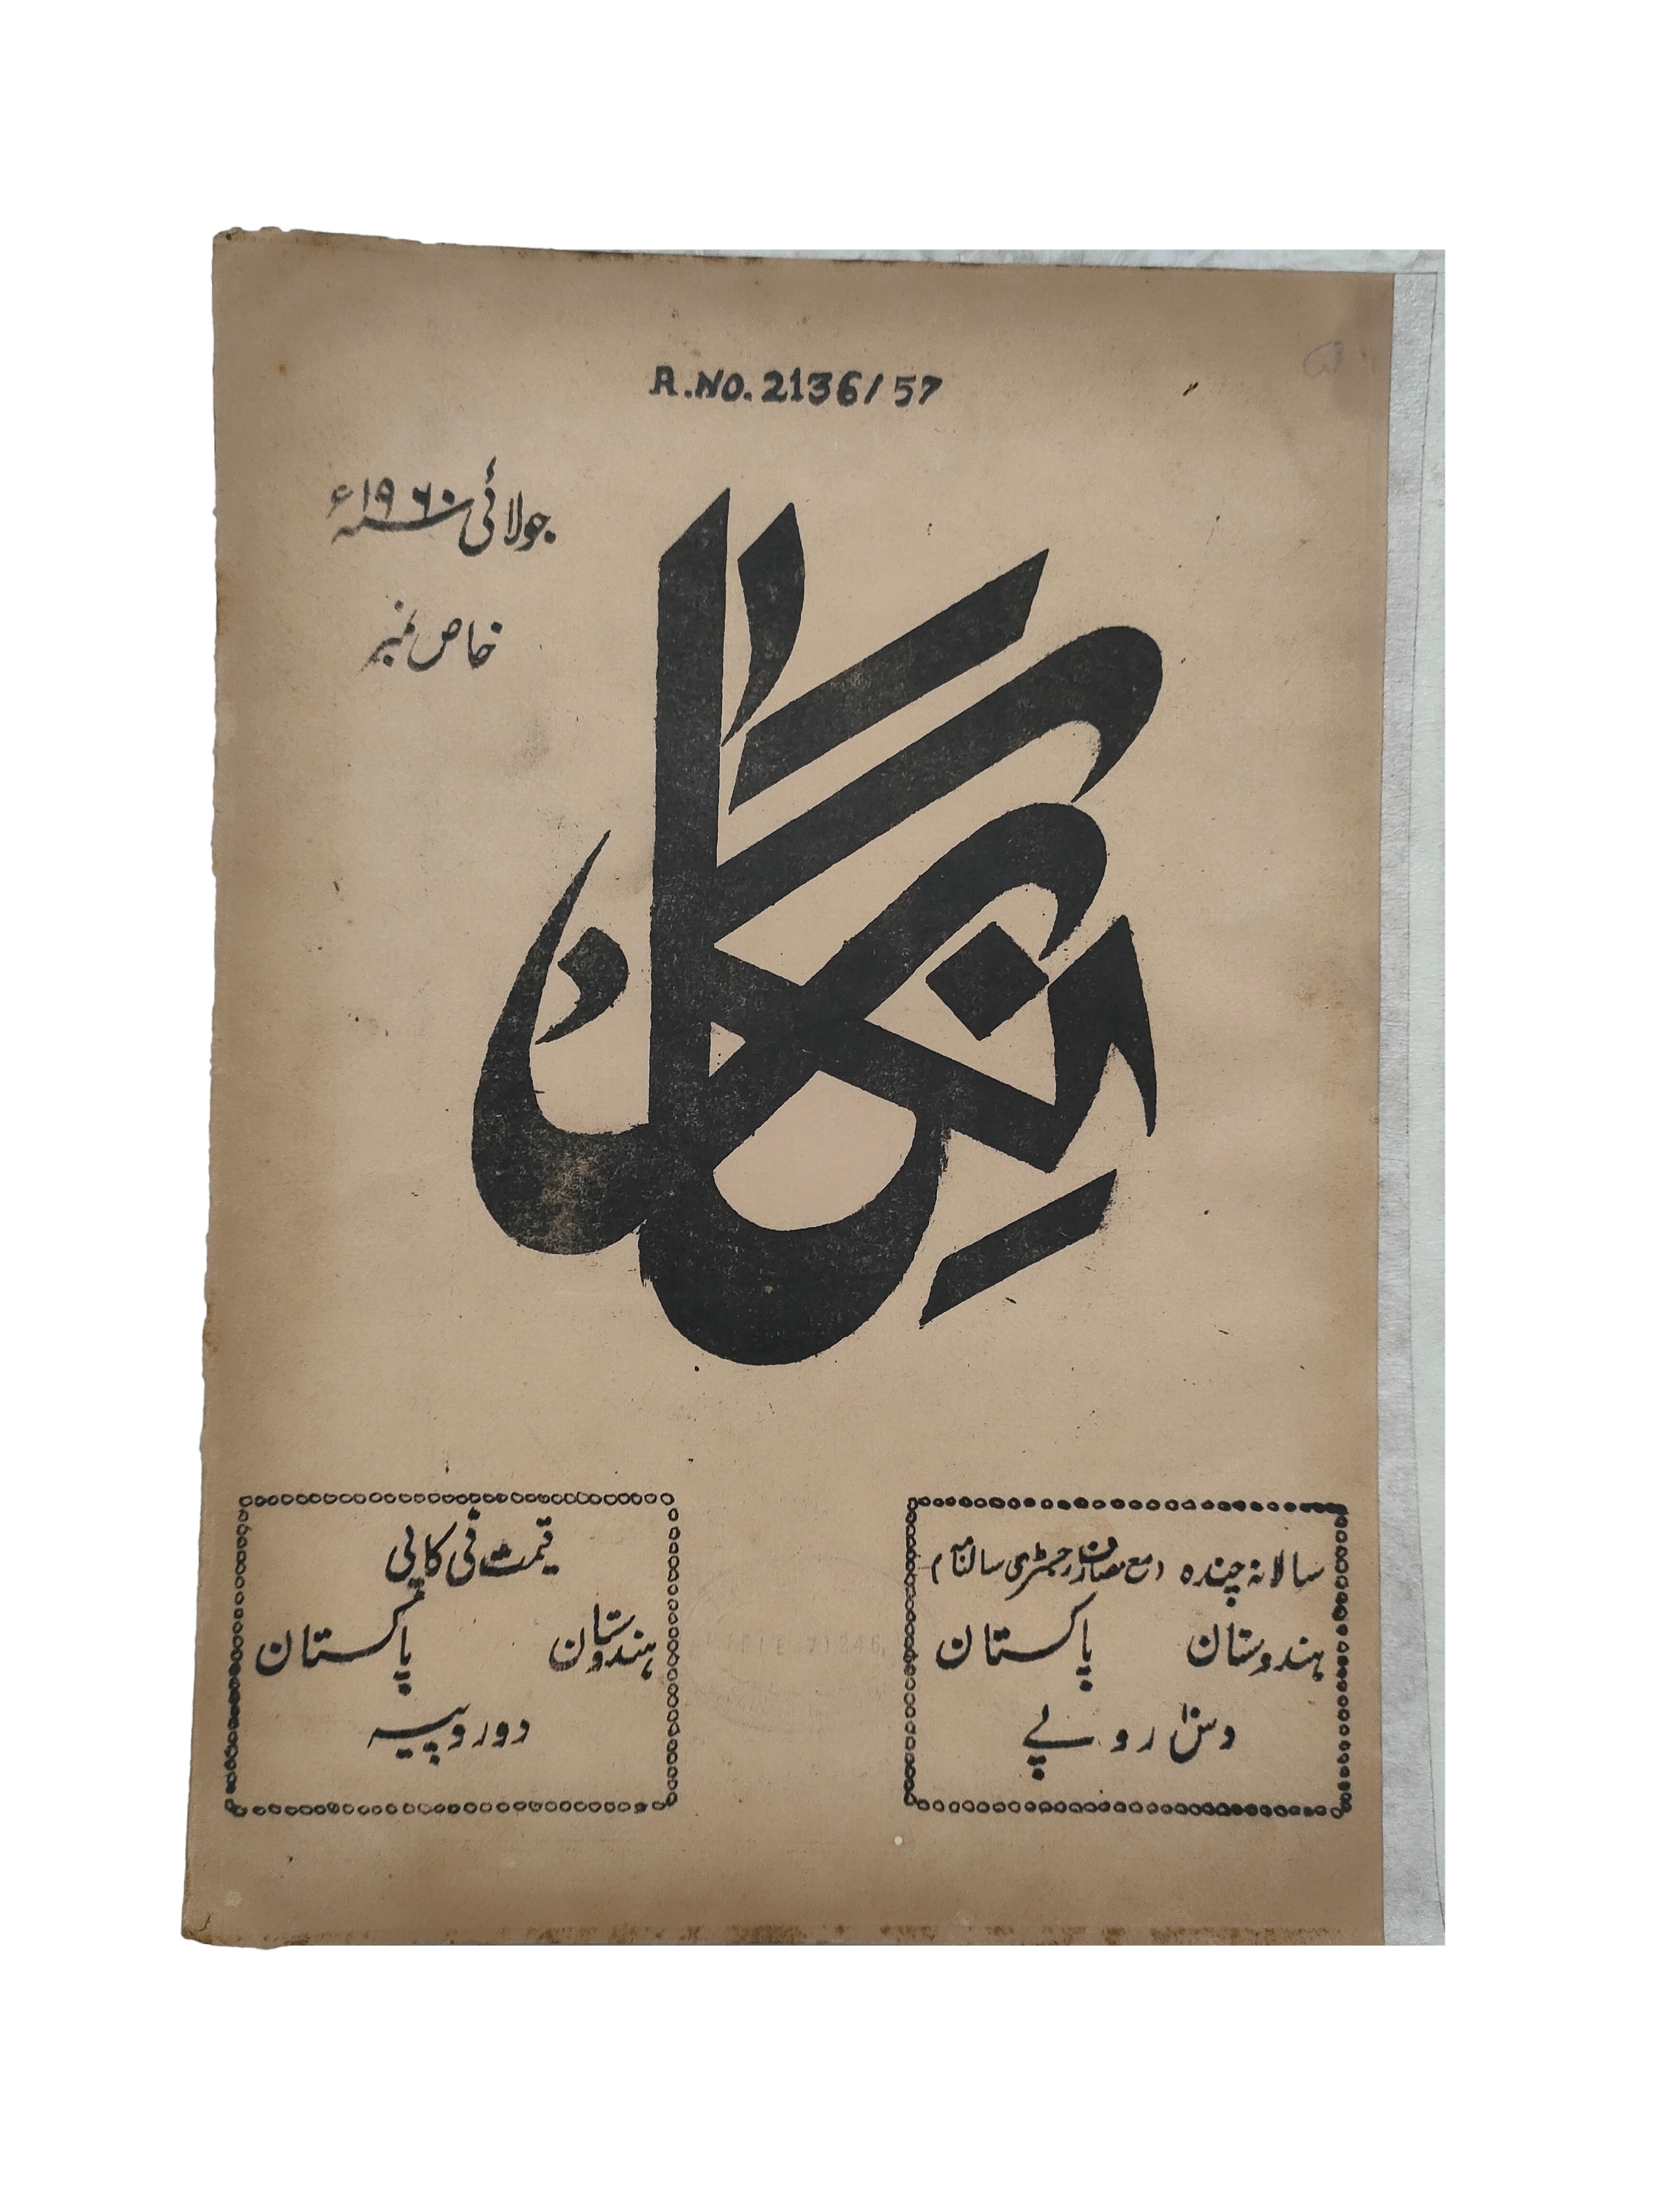 R.NO. 2136/57
جولائی ۱۹۶۰ء
خاص نمبر
نگار
سالانہ چندہ (مع مصارف رجسٹری سالنامہ)
ہندوستان پاکستان
دس روپے
قیمت فی کاپی
ہندوستان پاکستان
دو روپیہ